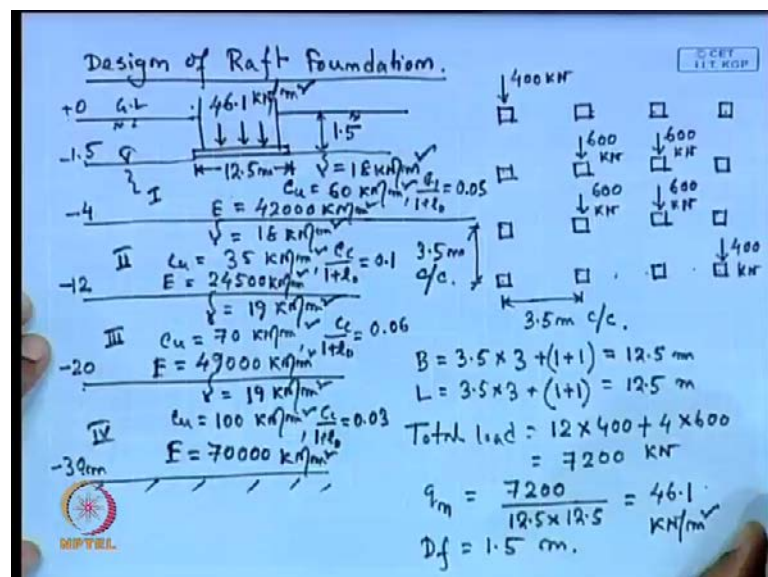 Design of Raft Foundation.
© CET
I.I.T. KGP
+0 G.L
46.1 KN/m²
1.5
-1.5
12.5m
γ = 18 KN/m²
I
Cu = 60 KN/m², Cc/1+e₀ = 0.05
E = 42000 KN/m²
-4
γ = 18 KN/m²
II
Cu = 35 KN/m², Cc/1+e₀ = 0.1
E = 24500 KN/m²
-12
γ = 19 KN/m²
III
Cu = 70 KN/m², Cc/1+e₀ = 0.06
E = 49000 KN/m²
-20
γ = 19 KN/m²
IV
Cu = 100 KN/m², Cc/1+e₀ = 0.03
E = 70000 KN/m²
NPTEL
400 KN
600 KN
600 KN
600 KN
600 KN
400 KN
3.5m c/c.
3.5m c/c.
B = 3.5 × 3 + (1+1) = 12.5 m
L = 3.5 × 3 + (1+1) = 12.5 m
Total load = 12 × 400 + 4 × 600
= 7200 KN
qn = 7200 / 12.5 × 12.5 = 46.1 KN/m²
Df = 1.5 m.